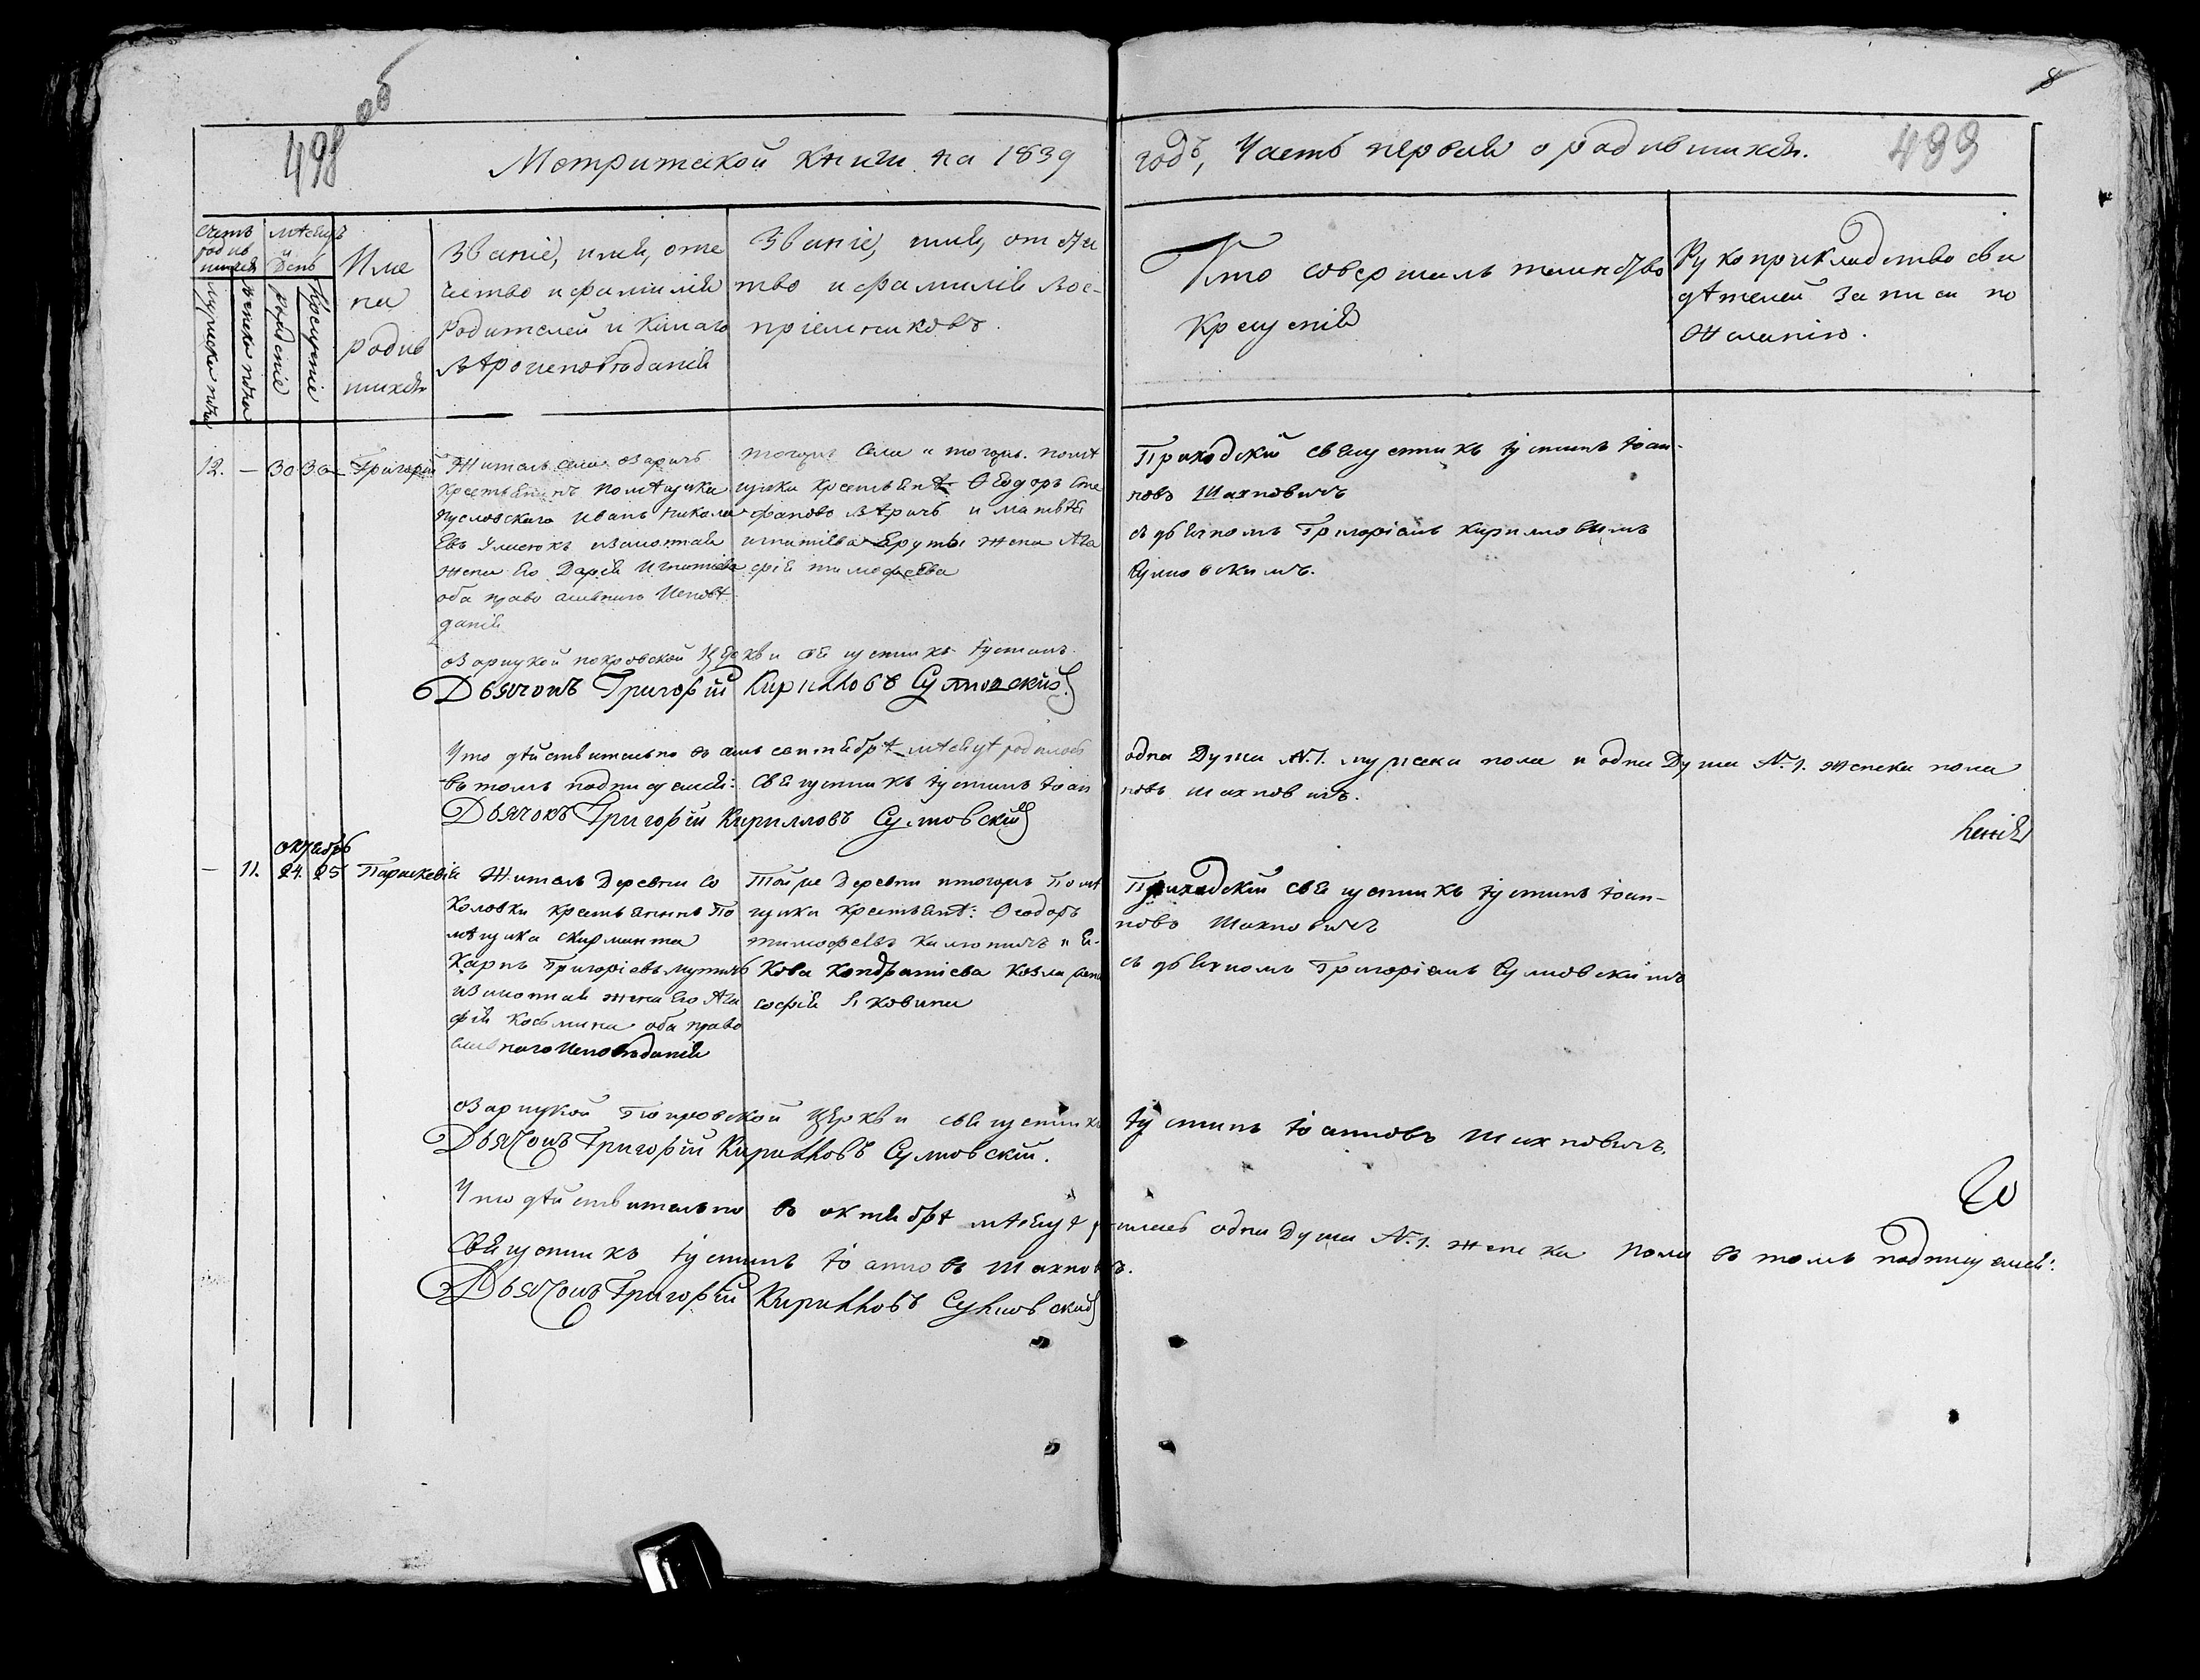 498 об
8
499
Метрической книги на 1839
годъ, Часть первая о родившихся.
Счетъ родившихся
мѣсяцъ и День
мужеска пола
женска пола
рожденіе
Крещеніе
Имена родившихся
Званіе, имя, отечество и фамилія
Родителей и какаго
вѣроисповѣданія
Званіе, имя, отечество и фамилія Воспріемниковъ.
Кто совершалъ таинство
Крещенія
Рукоприкладство свидѣтелей записи по
желанію.
12. — 30 30 Григорій
Житель села озаричъ
Крестьянинъ помѣщика
пусловскаго Иванъ Николаевъ
изаконная
жена его Дарія Игнатіева
оба православнаго Исповѣданія
тогожъ села и тогожъ помѣщика крестьяне Ѳеодоръ Стефановъ и матвѣя
игнатіева жена Агафія тимофеева
Приходскій священникъ іустинъ іоанновъ Махновичъ
съ дьячкомъ Григоріемъ Кирилловымъ
Сулковскимъ.
озарицкой покровской Церкви священникъ іустинъ
Дьячокъ Григорій Кирилловъ
Что дѣйствительно въ семъ сентябрѣ мѣсяцѣ родилось
одна Душа №.1. мужеска пола и одна Душа №.1. женска пола
въ томъ подписуемся: священникъ іустинъ іоанновъ Махновичъ.
Дьячокъ Григорій Кирилловъ
октябрь
— 11. 24. 25 Параскевія
Житель Деревни Соколовки крестьянинъ Помѣщика скирмонта
Карпъ Григоріевъ
изаконная жена его Агафія Косьмина оба православнаго Исповѣданія
Той же Деревни итогожъ Помѣщика крестьяне: Ѳеодоръ
тимофеевъ и
Кондратіева Козла жена
софія Яковина
Приходскій священникъ іустинъ іоанновъ Махновичъ
съ дьячкомъ Григоріемъ
озарицкой Покровской Церкви священникъ іустинъ іоанновъ Махновичъ.
Дьячокъ Григорій Кирилловъ
Что дѣйствительно въ октябрѣ мѣсяцѣ родилась одна Душа №.1. женска пола въ томъ подписуемся:
Священникъ іустинъ іоанновъ Махновичъ.
Дьячокъ Григорій Кирилловъ